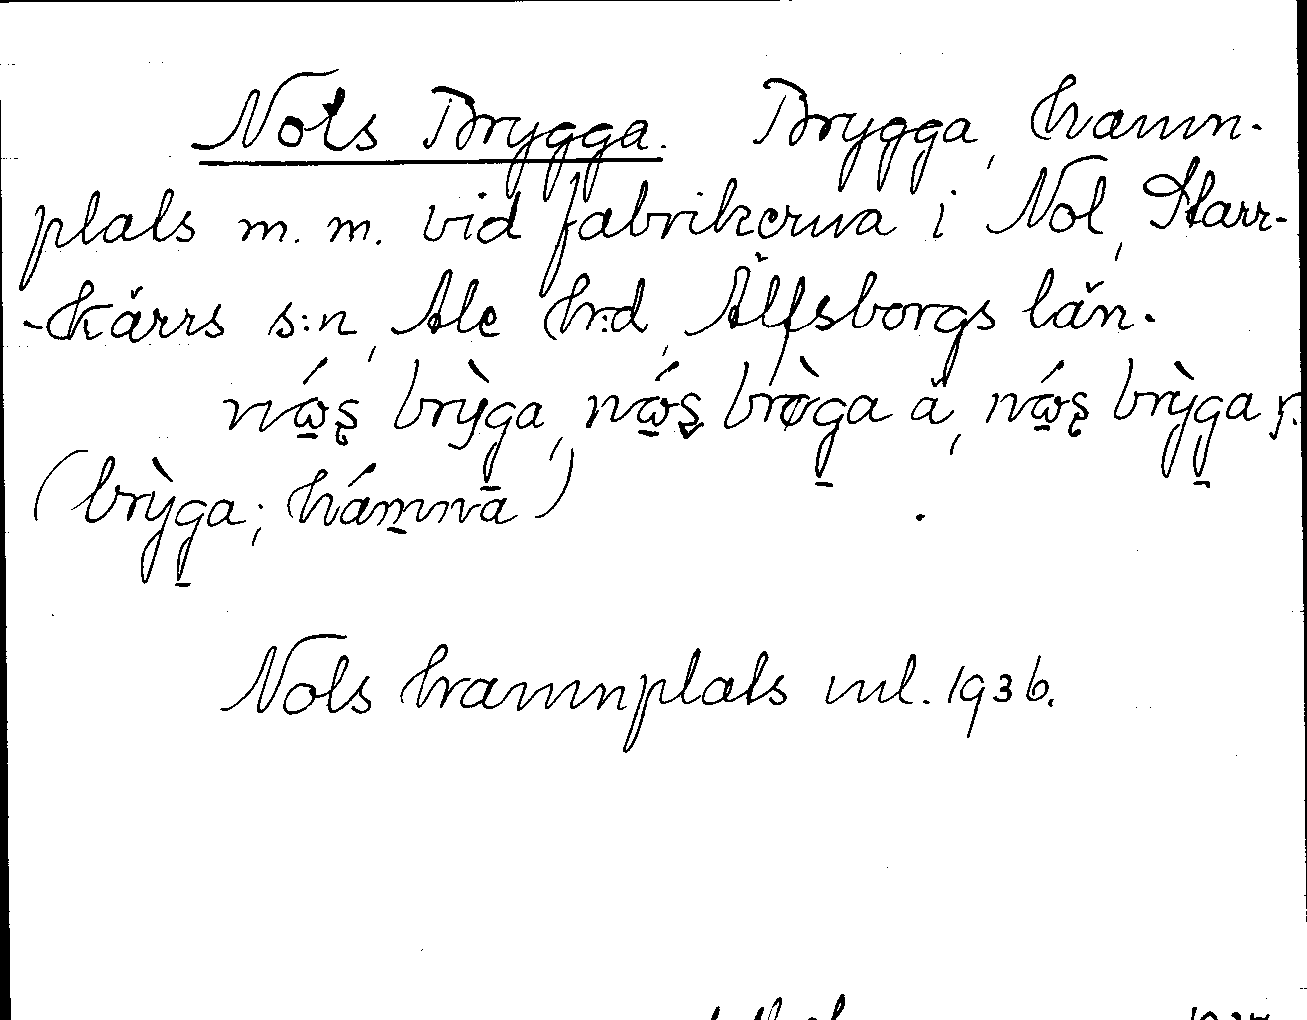 Nols Brygga. Brygga, hamn-
plats m. m. vid fabrikerna i Nol, Starr-
-kärrs s:n, Ale h:d, Älfsborgs län.
nώ̲ʂ brỳg̲a, nώ̲ʂ brøg̲̀a ă, nώ̲ʂ brỳg̲a ɼ.
(brỳg̲a; hám̲nā)
Nols hamnplats ml. 1936.